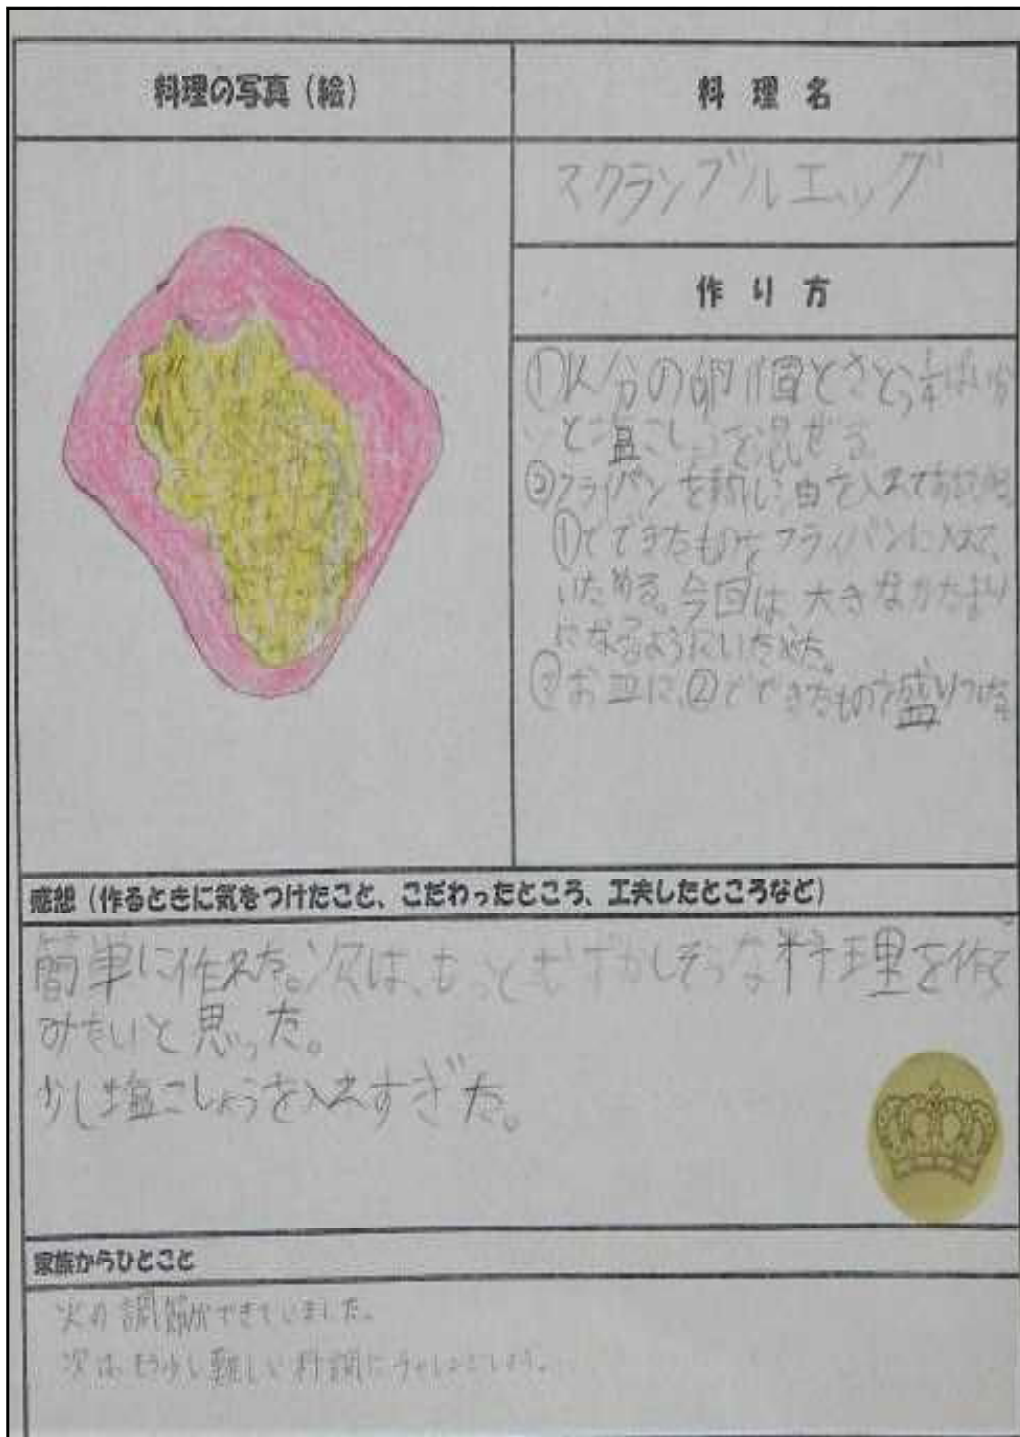 料理の写真（絵）
料理名
スクランブルエッグ
作り方
①人分の卵1個とさとう
と塩こしょうを混ぜる。
②フライパンを熱し油を入れて
①でできたものをフライパンに入れて、
いためる。今回は大きなかたまり
になるようにいためた。
③お皿に、②でできたものを盛りつけた
感想（作るときに気をつけたこと、こだわったところ、工夫したところなど）
簡単に作れた。次は、もっとむずかしそうな料理を作って
みたいと思った。
少し塩こしょうを入れすぎた。
家族からひとこと
火の調節ができていました。
次はもう少し難しい料調にチャレンジしよう。